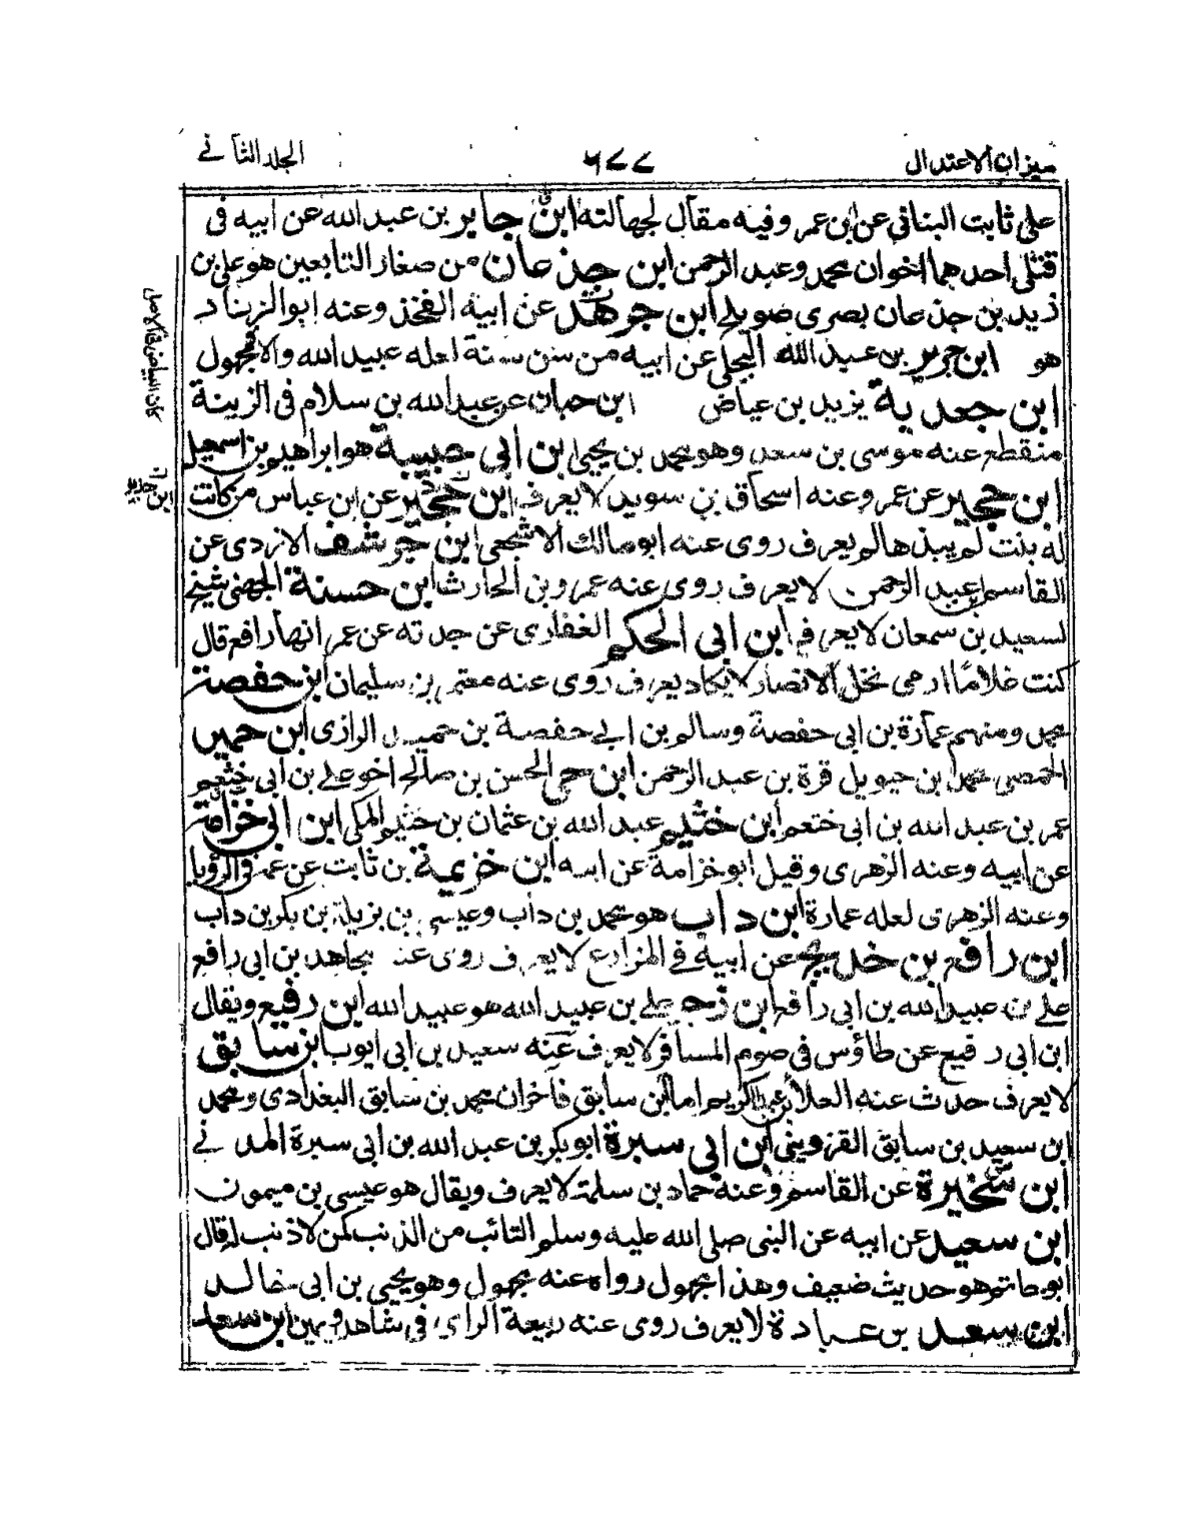 ميزان الاعتدال
٦٧٧
الجلد الثاني
على ثابت البناني عن ابن عمر وفيه مقال لجهالته ابن جابر بن عبد الله عن ابيه في
قتلى احد هما اخوان محمد وعبد الرحمن ابن جذعان من صغار التابعين هو علي بن
زيد بن جذعان بصرى صويلح ابن جرهد عن ابيه الفخذ وعنه ابو الزناد
هو ابن جرير بن عبد الله البجلي عن ابيه من سن سنة لعله عبيد الله والا فمجهول
ابن جعدية يزيد بن عياض ابن حبان عن عبد الله بن سلام في الزينة
منقطع عنه موسى بن سعد وهو محمد بن يحيى ابن ابي حبيبة هو ابراهيم بن اسمعيل
ابن حجير عن عمر وعنه اسحاق بن سويد لا يعرف ابن حجير عن ابن عباس من كانت
له بنت لم يبذها لم يعرف روى عنه ابو مالك الاشجعي ابن حرشف الازدى عن
القاسم ابي عبد الرحمن لا يعرف روى عنه عمرو بن الحارث ابن حسنة الجهني شيخ
لسعيد بن سمعان لا يعرف ابن ابي الحكم الغفارى عن جدته عن عم ابيها رافع قال
كنت غلاما ارمى نخل الانصار لا يكاد يعرف روى عنه معتمر بن سليمان ابن حفصة
محمد ومنهم عمارة بن ابي حفصة وسالم بن ابي حفصة بن حميد الرازى ابن حمير
الحمصى محمد ابن حيويل قرة بن عبد الرحمن ابن حي الحسن بن صالح اخو علي بن ابي خثعم
عمر بن عبد الله بن ابي ختعم ابن خثيم عبد الله بن عثمان بن خثيم المكى ابن ابي خزامة
عن ابيه وعنه الزهرى وقيل ابو خزامة عن ابيه ابن خزيمة بن ثابت عن عمه في الرؤيا
وعنه الزهرى لعله عمارة ابن داب هو محمد بن داب وعيسى بن يزيد بن بكر بن داب
ابن رافع بن خديج عن ابيه في المزارع لا يعرف روى عنه مجاهد بن ابي رافع
علي بن عبيد الله بن ابي رافع ابن زحر علي بن عبيد الله هو عبيد الله ابن رفيع ويقال
ابن ابي رفيع عن طاؤس في صوم المسافر لا يعرف عنه سعيد بن ابي ايوب ابن سابق
لا يعرف حدث عنه العلا بن عبد الكريم اما ابن سابق فاخوان محمد بن سابق البغدادى ومحمد
ابن سعيد بن سابق القزوينى ابن ابي سبرة ابو بكر بن عبد الله بن ابي سبرة المدني
ابن سخبرة عن القاسم وعنه حماد بن سلمة لا يعرف ويقال هو عيسى بن ميمون
ابن سعيد عن ابيه عن النبي صلى الله عليه وسلم التائب من الذنب كمن لا ذنب له قال
ابو حاتم هو حديث ضعيف وهذا مجهول رواه عنه مجهول وهو يحيى بن ابي خالد
ابن سعد بن عبادة لا يعرف روى عنه ربيعة الراى في شاهد ويمين ابن سعد